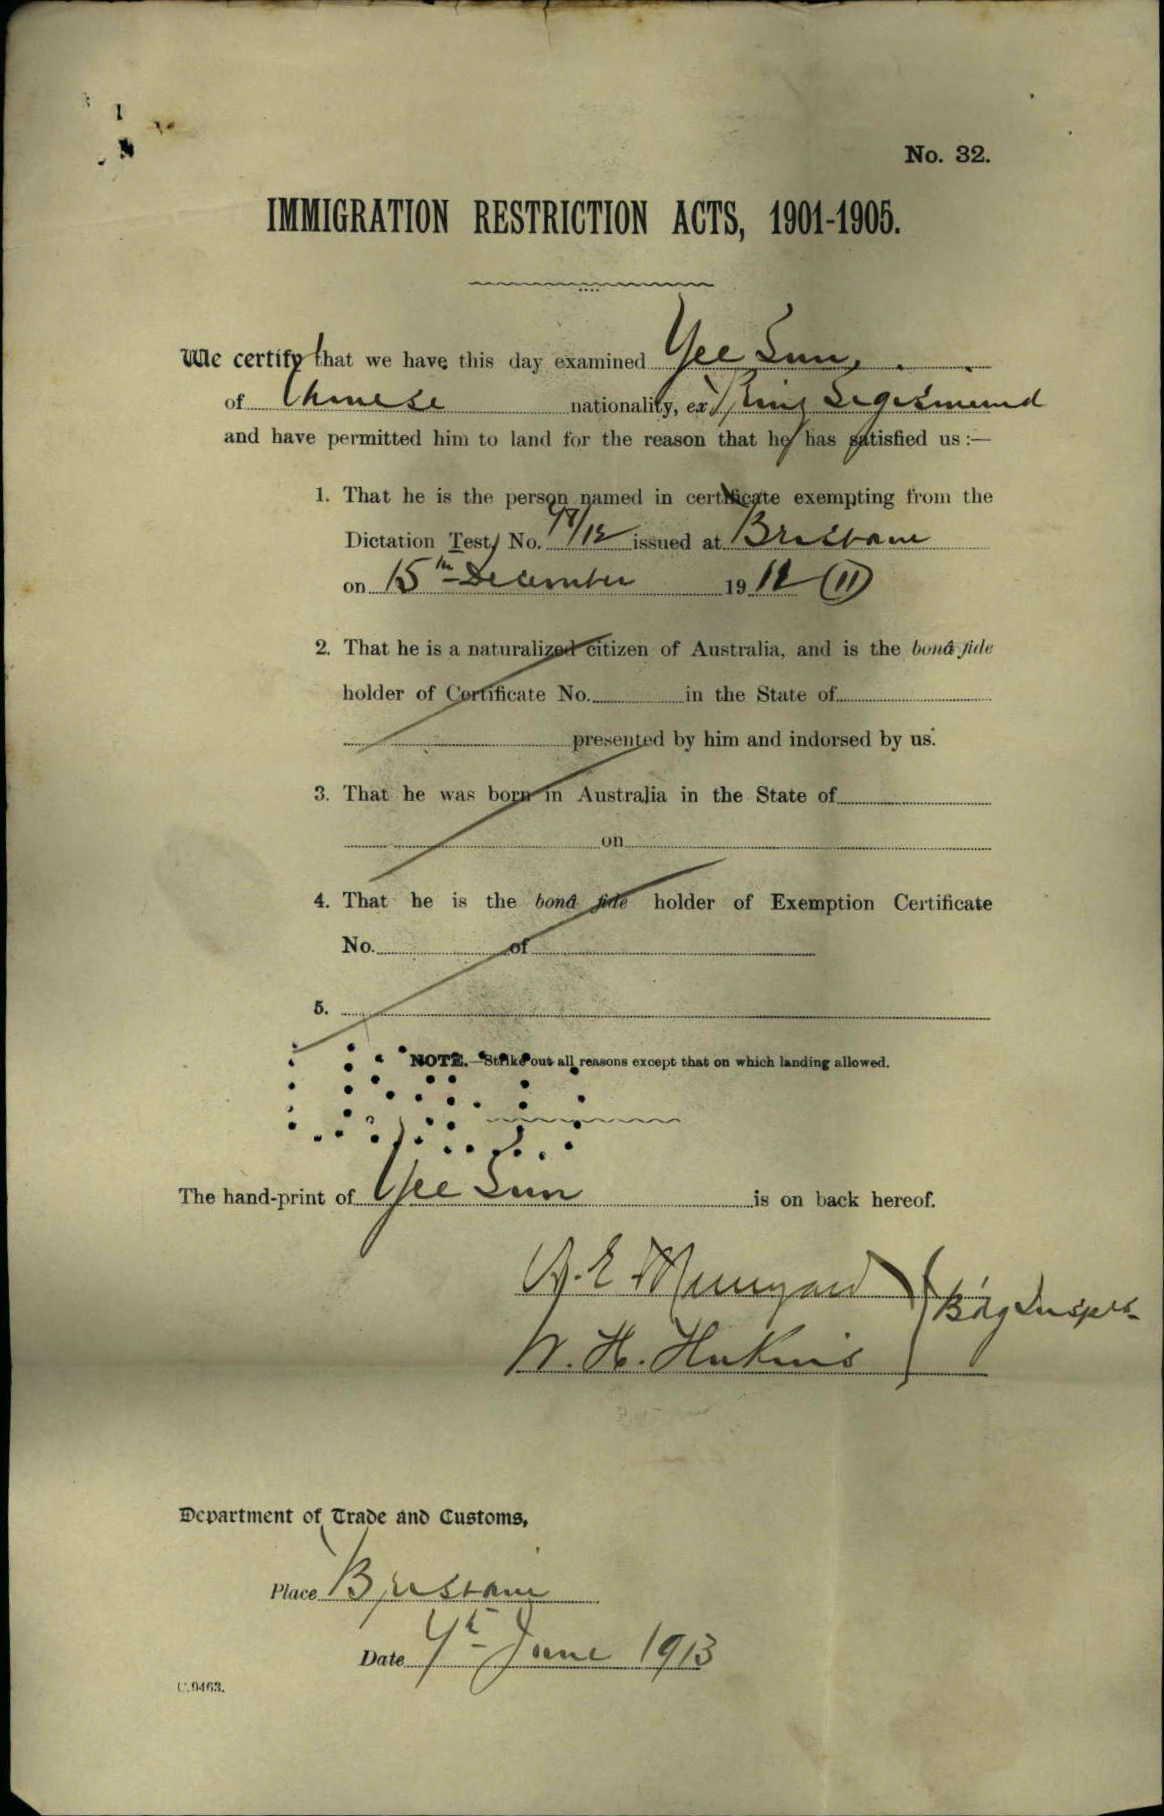 No. 32.
IMMIGRATION RESTRICTION ACTS, 1901-1905.
We certify that we have this day examined Yee Sun,
of Chinese nationality, ex Prinz Sigismund
and have permitted him to land for the reason that he has satisfied us :—
1. That he is the person named in certificate exempting from the
Dictation Test, No. /12 issued at Brisbane
on 15th December 1912 (11)
2. That he is a naturalized citizen of Australia, and is the bonâ fide
holder of Certificate No. in the State of
presented by him and indorsed by us.
3. That he was born in Australia in the State of
on
4. That he is the bonâ fide holder of Exemption Certificate
No. of
5.
NOTE.—Strike out all reasons except that on which landing allowed.
The hand-print of Yee Sun is on back hereof.
W. H.
Department of Trade and Customs,
Place Brisbane
Date June 1913
C.9463.